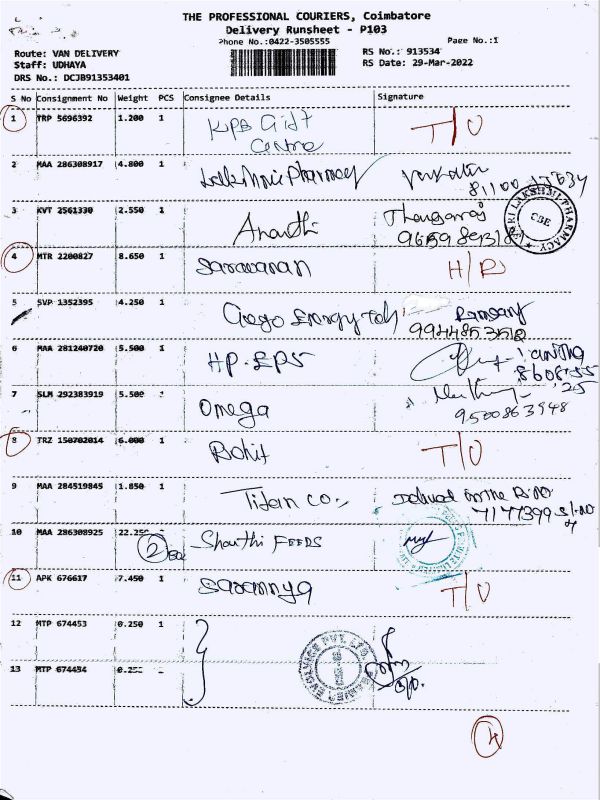 THE PROFESSIONAL COURIERS, Coimbatore
Delivery Runsheet - P103
Phone No.:0422-3505555
Page No.:1
Route: VAN DELIVERY
RS No.: 913534
Staff: UDHAYA
RS Date: 29-Mar-2022
DRS No.: DCJB91353401
S No Consignment No Weight PCS Consignee Details Signature
1 TRP 5696392 1.200 1 KPB Gift T/O
Centre
2 MAA 286308917 4.800 1 Lakshmi Pharmacy
SRI LAKSHMI PHARMACY CBE
3 KVT 2561330 2.550 1 Ananthi Thangaraj
4 MTR 2200827 8.650 1 Saravanan H/R
5 SVP 1352395 4.250 1
6 MAA 281240720 5.500 1 HP. EPS
7 SLM 292383919 5.500 Omega
9500863948
8 TRZ 150702014 6.000 1 Rohit T/O
9 MAA 284519845 1.850 1 Titan Co.
10 MAA 286308925 22.250 2 Shanthi FEEDS
11 APK 676617 7.450 1 T/O
12 MTP 674453 0.250 1
13 MTP 674454
4